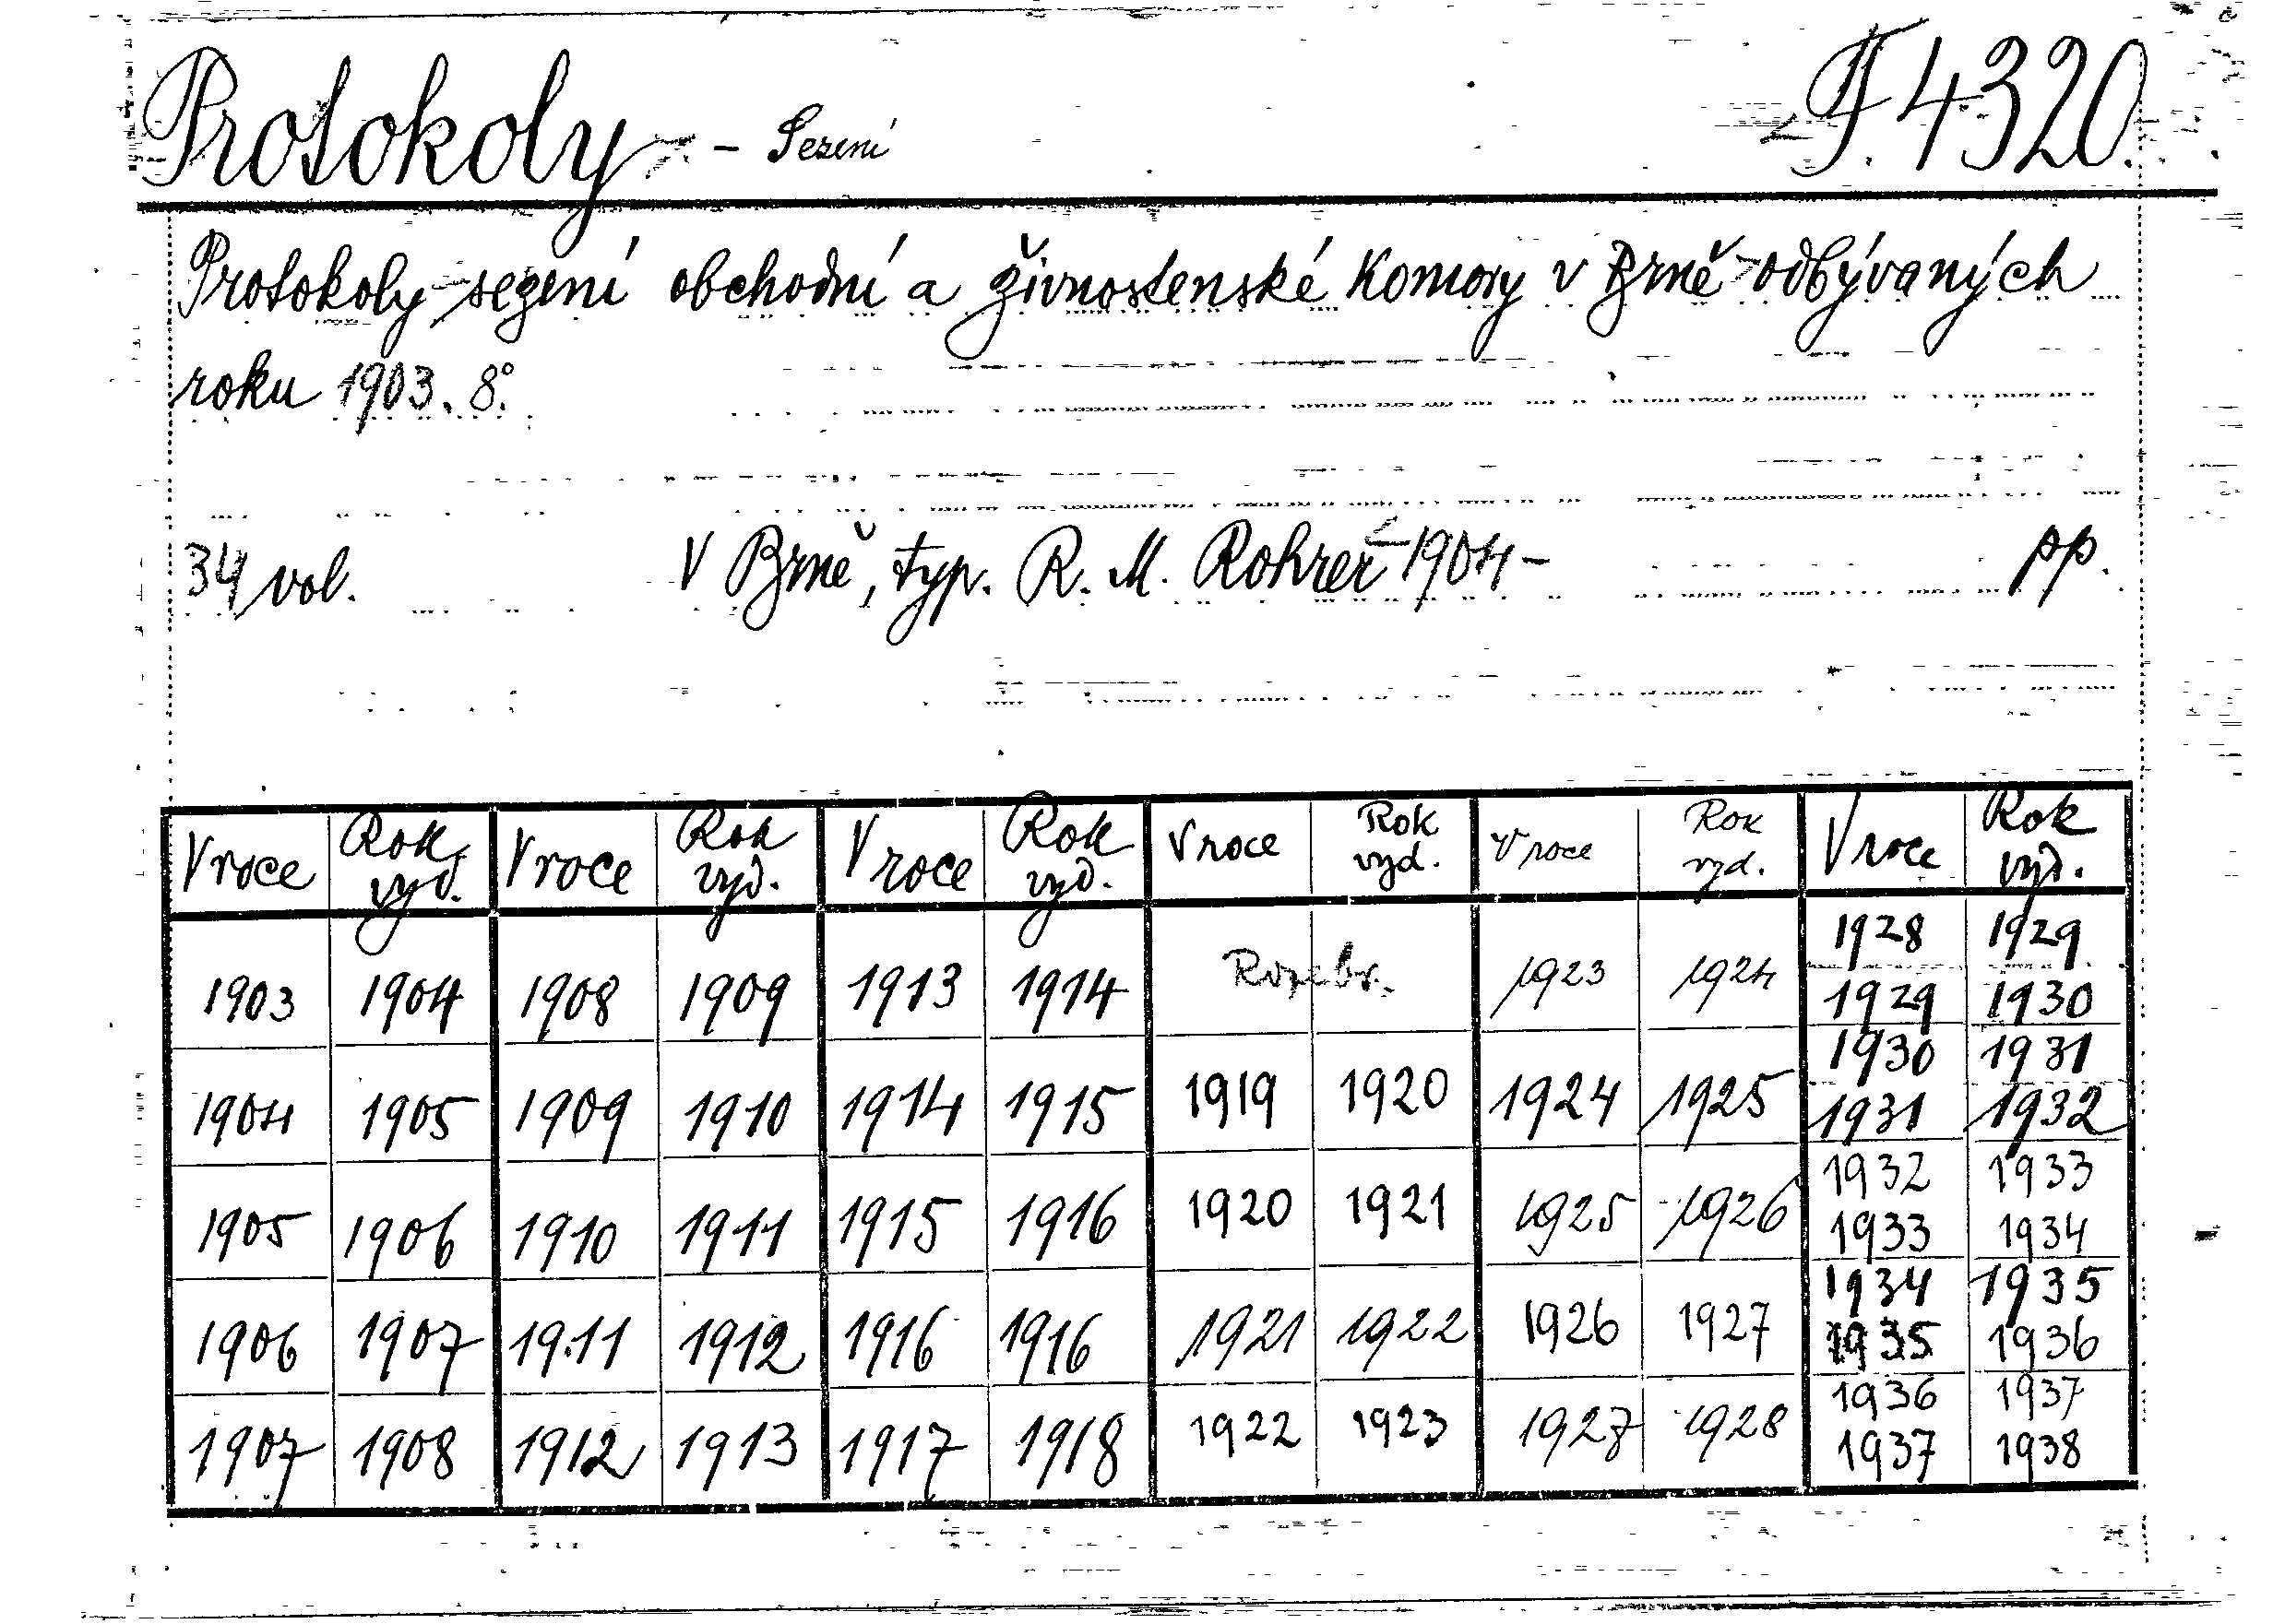 Protokoly - Sezení F. 4320.
Protokoly sezení obchodní a živnostenské Komory v Brně odbývaných
roku 1903. 8°.
34 vol. V Brně, typ. R. M. Rohrer 1904- pp.
V roce Rok vyd. V roce Rok vyd. V roce Rok vyd. V roce Rok vyd. V roce Rok vyd. V roce Rok vyd.
1928 1929
1903 1904 1908 1909 1913 1914 1923 1924
1929 1930
1930 1931
1904 1905 1909 1910 1914 1915 1919 1920 1924 1925
1931 1932
1932 1933
1905 1906 1910 1911 1915 1916 1920 1921 1925 1926
1933 1934
1934 1935
1906 1907 1911 1912 1916 1916 1921 1922 1926 1927
1935 1936
1936 1937
1907 1908 1912 1913 1917 1918 1922 1923 1927 1928
1937 1938